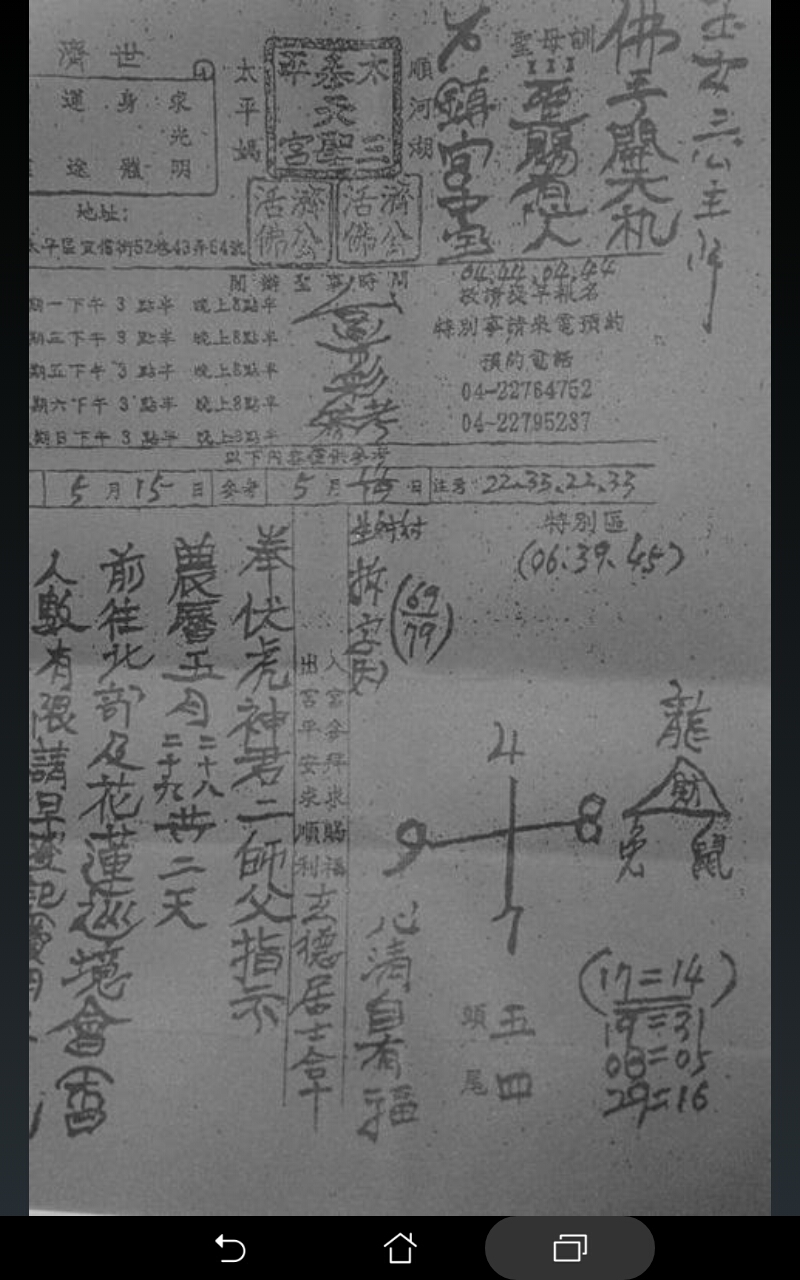 玉女三公主降
佛手開天机
聖母訓
聖賜有人
鎮宮中壇
順河湖
太平泰天聖三宮
濟公活佛
濟公活佛
太平媽
濟世
求身運
光
明體途
地址:
太平區宜信街52巷43弄64號
04.22.04.44
敬請提早報名
特別事請來電預約
預約電話
04-22764752
04-22795237
開辦聖事時間
參考
期一下午3點半 晚上8點半
期三下午3點半 晚上8點半
期五下午3點半 晚上8點半
期六下午3點半 晚上8點半
期日下午3點半 晚上8點半
以下內容僅供參考
5月15日 參考 5月 日 注意:22.33.22.33
特別區
(06.39.45)
拆字
(69
79)
龍
財
兔 鼠
4
9 8
7
(17=14)
19=31
08=05
29=16
頭五
尾四
心清自有福
入宮參拜求賜福
出宮平安求順利
玄德居士合十
奉伏虎神君二師父指示
農曆五月二十八二十九共二天
前往北部及花蓮巡境會
人數有限請早登記費用